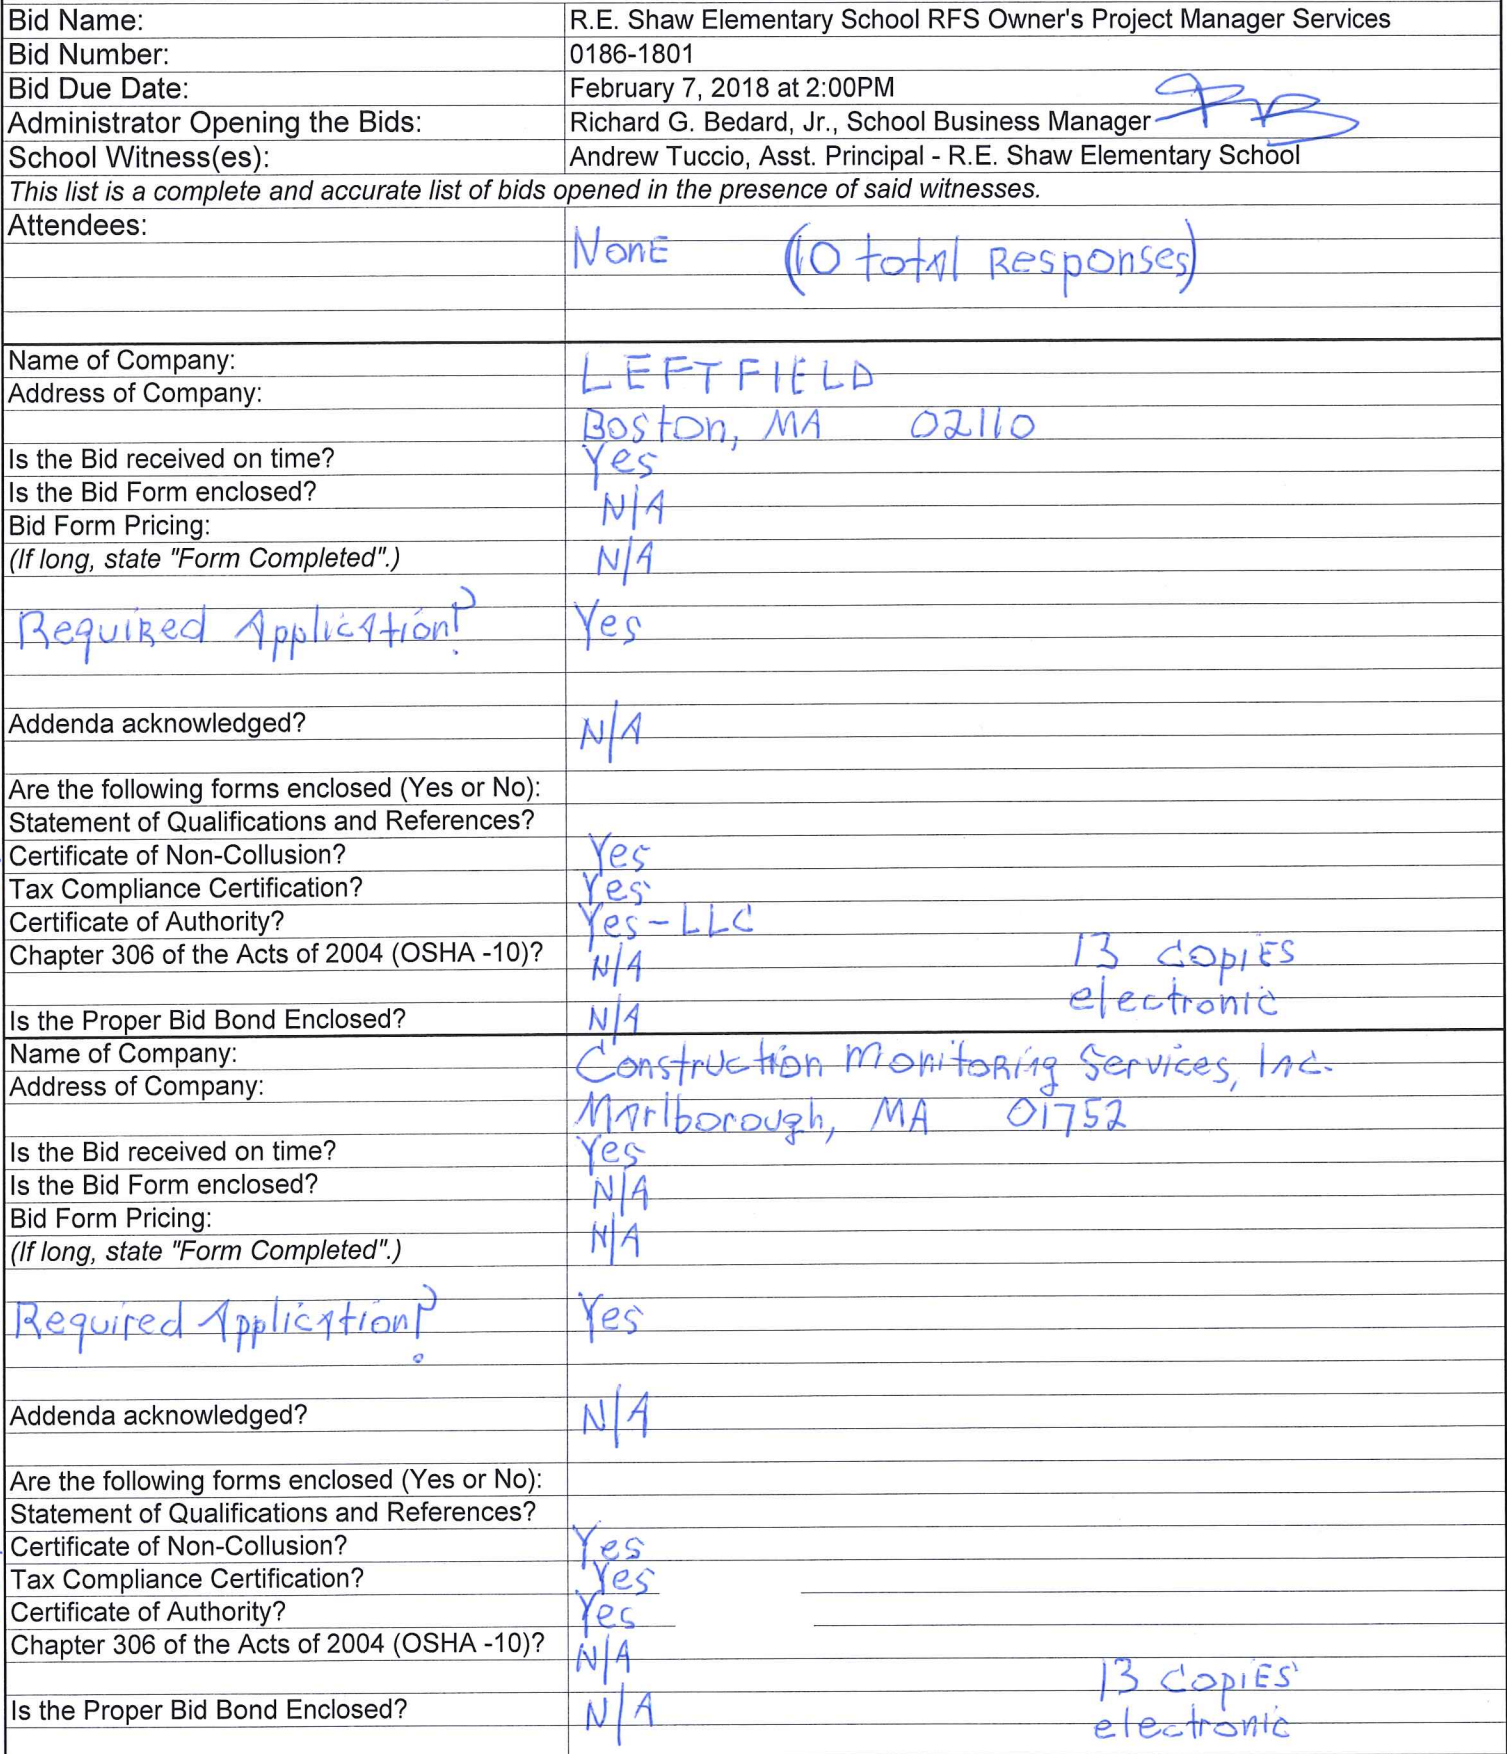 Bid Name: R.E. Shaw Elementary School RFS Owner's Project Manager Services
Bid Number: 0186-1801
Bid Due Date: February 7, 2018 at 2:00PM
Administrator Opening the Bids: Richard G. Bedard, Jr., School Business Manager
School Witness(es): Andrew Tuccio, Asst. Principal - R.E. Shaw Elementary School
This list is a complete and accurate list of bids opened in the presence of said witnesses.
Attendees:
None (10 total Responses)
Name of Company: LEFTFIELD
Address of Company:
Boston, MA 02110
Is the Bid received on time? Yes
Is the Bid Form enclosed? N/A
Bid Form Pricing:
(If long, state "Form Completed".) N/A
Required Application? Yes
Addenda acknowledged? N/A
Are the following forms enclosed (Yes or No):
Statement of Qualifications and References?
Certificate of Non-Collusion? Yes
Tax Compliance Certification? Yes
Certificate of Authority? Yes - LLC
Chapter 306 of the Acts of 2004 (OSHA -10)? N/A 13 copies
electronic
Is the Proper Bid Bond Enclosed? N/A
Name of Company: Construction Monitoring Services, Inc.
Address of Company:
Marlborough, MA 01752
Is the Bid received on time? Yes
Is the Bid Form enclosed? N/A
Bid Form Pricing: N/A
(If long, state "Form Completed".)
Required Application? Yes
Addenda acknowledged? N/A
Are the following forms enclosed (Yes or No):
Statement of Qualifications and References?
Certificate of Non-Collusion? Yes
Tax Compliance Certification? Yes
Certificate of Authority? Yes
Chapter 306 of the Acts of 2004 (OSHA -10)? N/A
13 copies
Is the Proper Bid Bond Enclosed? N/A electronic